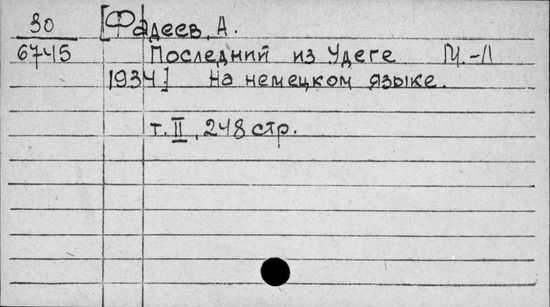 30 [Фадеев, А.
6745 Последний из Удеге М.-Л
1934] На немецком языке.
т. II, 248 стр.